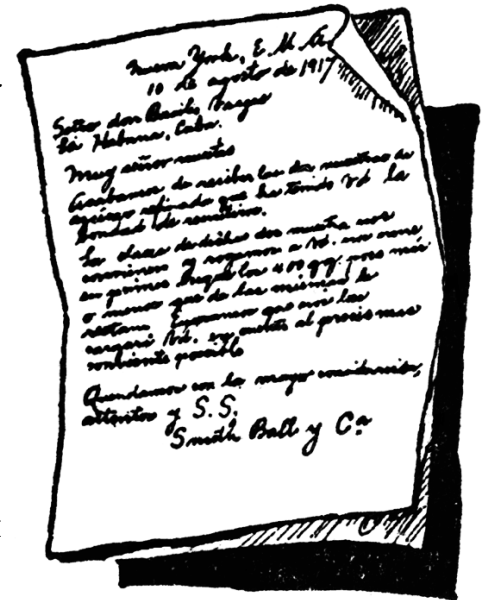 Nueva York, E. U. A.
10 de agosto de 1917
Señor don Basilio Vargas
La Habana, Cuba.
Muy señor nuestro
Acabamos de recibir las dos muestras de
azúcar refinado que ha tenido Vd la
bondad de remitirnos.
La clase de dicha dos muestra nos
conviene y rogamos a Vd. nos mande
en primer buque los 400 qq. poco más
o menos que de las mismas le
restan. Esperamos que nos las
cargará Vd. en cuenta al precio mas
conveniente posible
Quedamos con la mayor consideración,
attentos y S. S.
Smith Ball y Cª